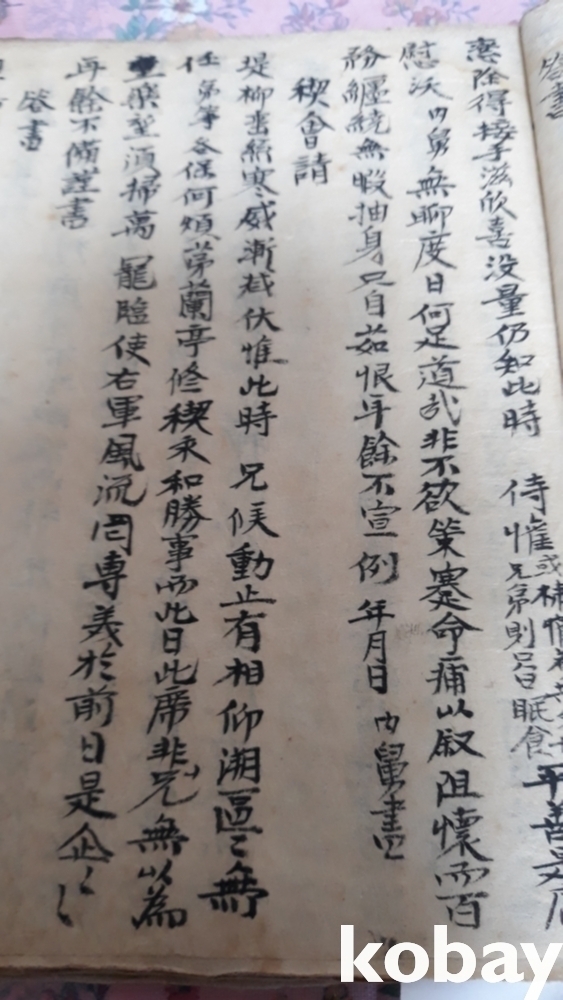 答書
憲除得接手滋欣喜没量仍知此時 侍惟或 兄弟則 眠食 平善是
慰沃內舅無聊度日何足道哉非不欲策蹇命痡以叙阻懷而百
務纏繞無暇抽身只自茹恨耳餘不宣例 年月日 內舅書
稧會請
堤柳 寒威漸 伏惟此時 兄候動止有相仰溯區〻無
任弟 何煩第蘭亭修稧永和勝事而此日此席非兄無以為
樂 須掃萬 寵臨使右軍風流罔專美於前日是企〻〻
再餘不備謹書
答書
kobay